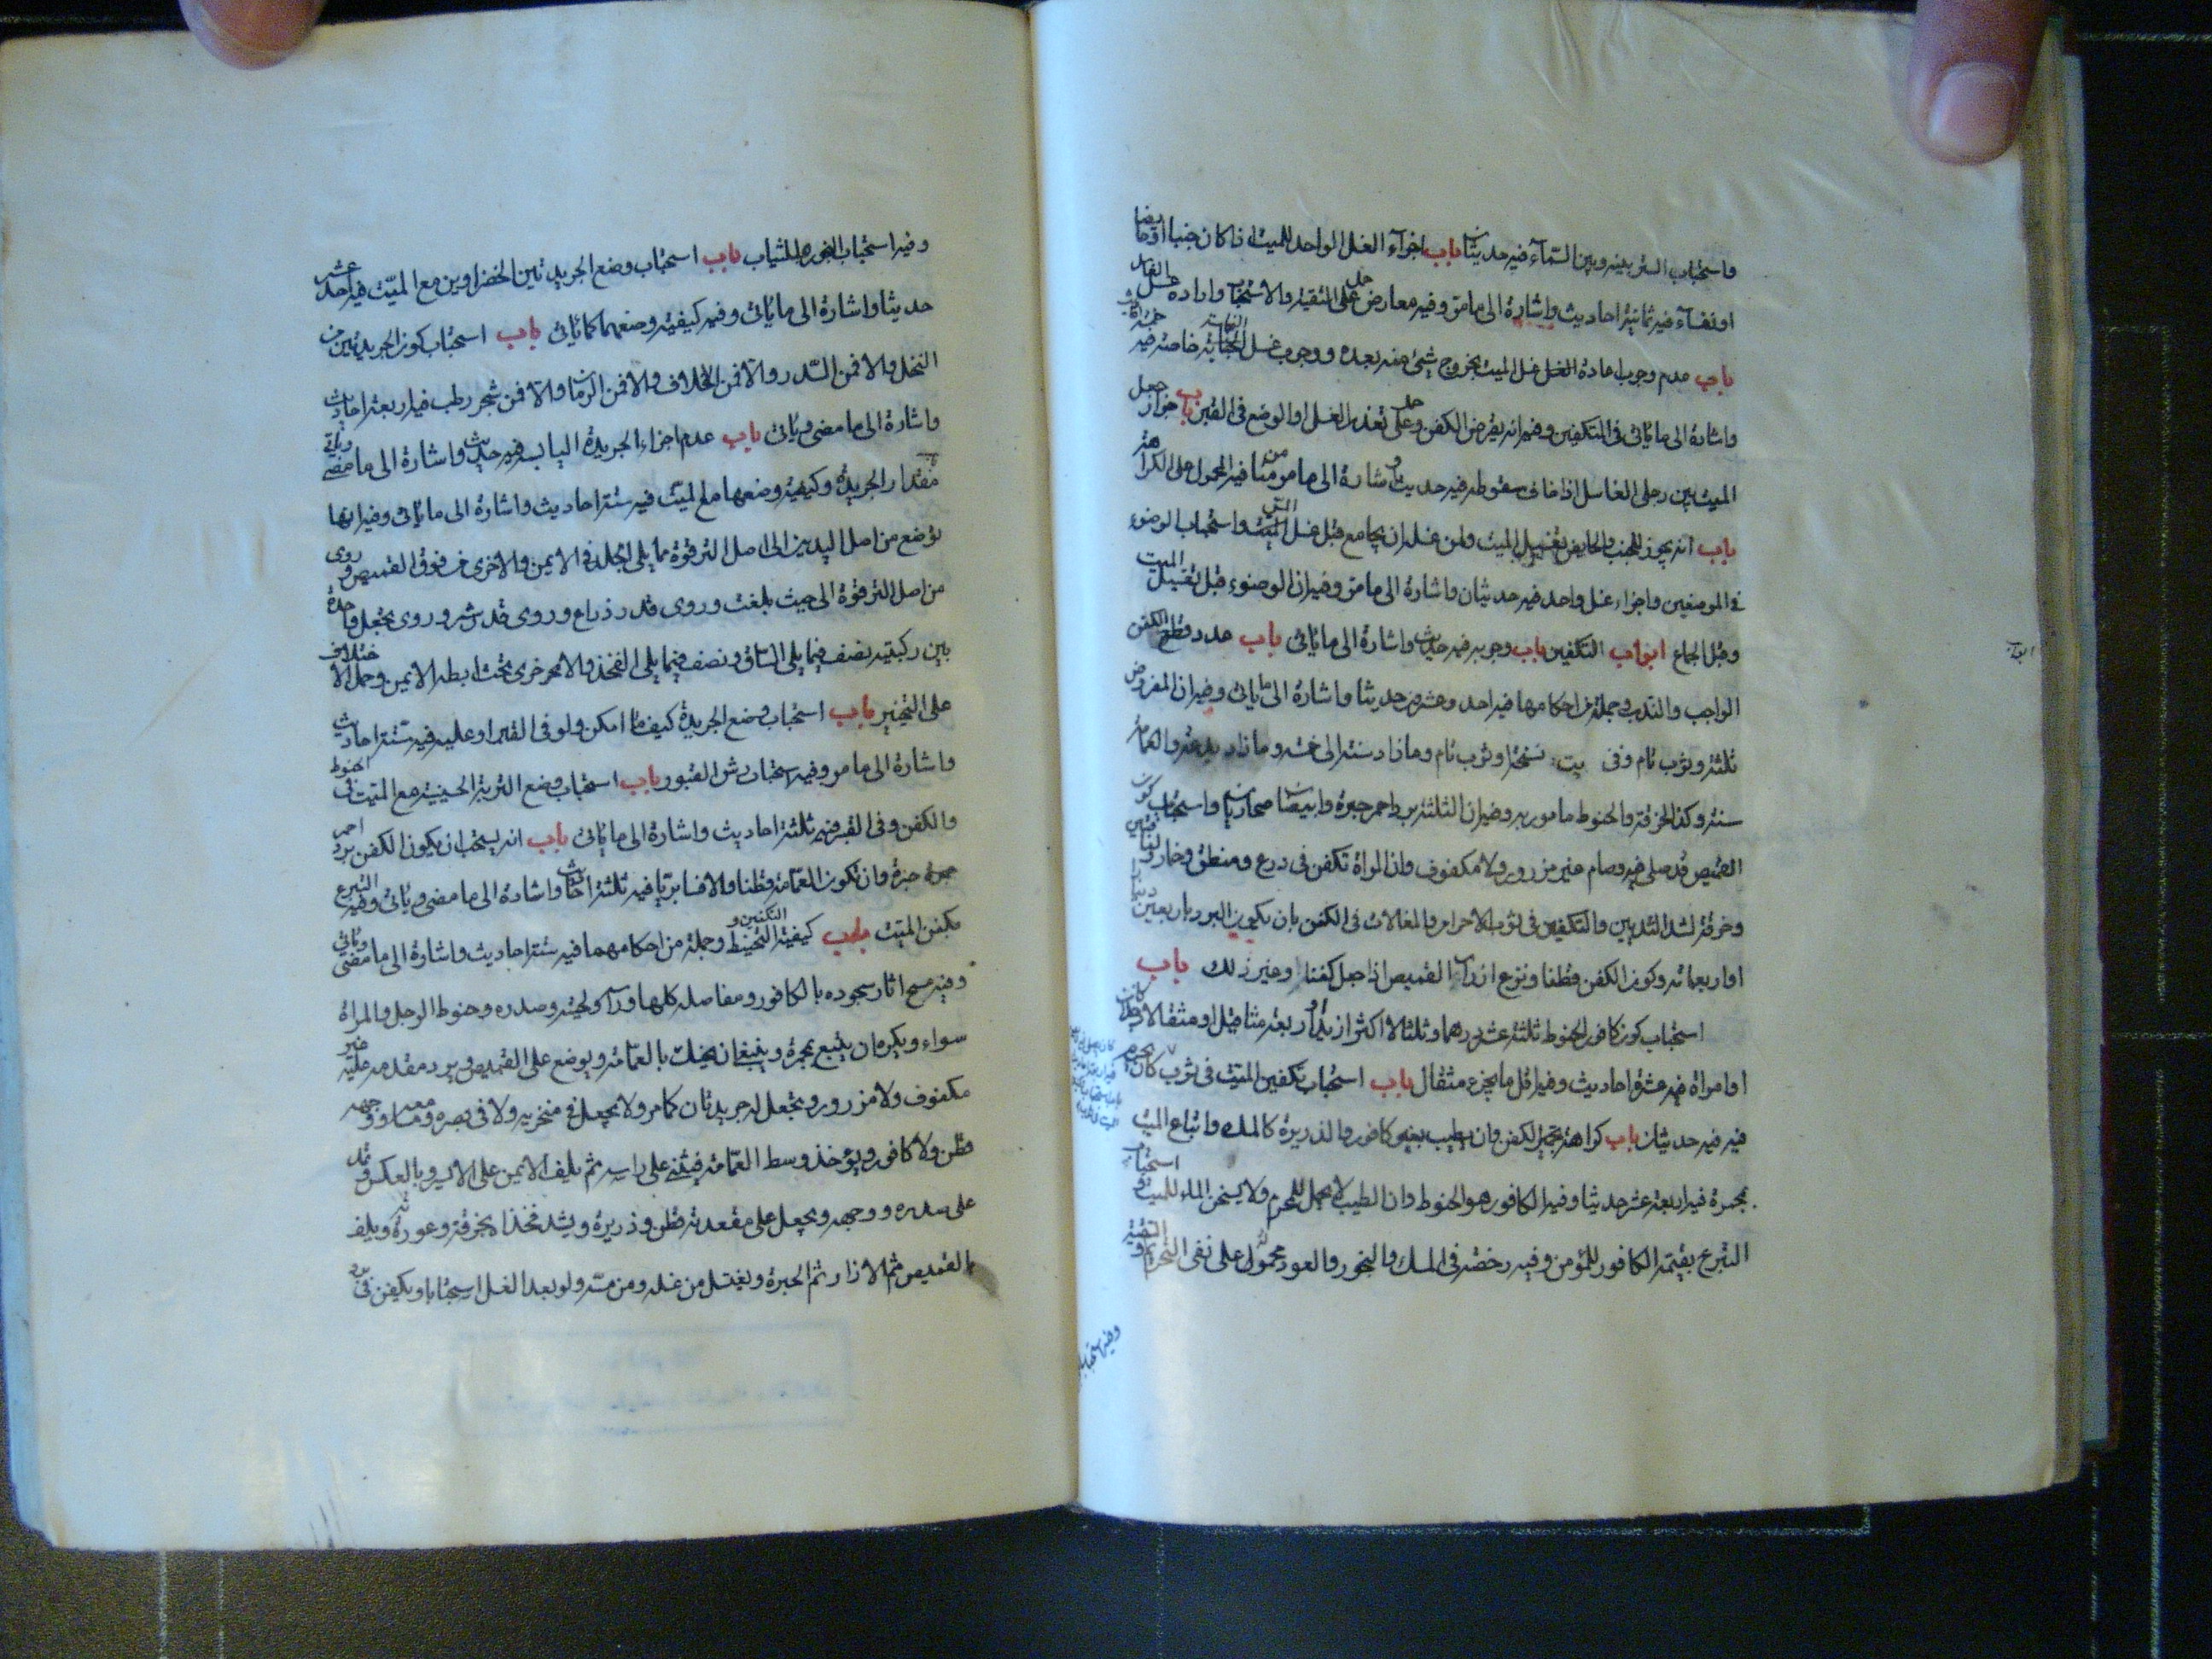 واستحباب الستر بينه وبين السماء فيه حديثان باب اجزاء الغسل الواحد للميت اذا كان جنبا او حايضا
او نفساء فيه ثمانية احاديث واشارة الى ما مر وفيه معارض حمل على التقية والاستحباب وارادة غسل
باب عدم وجوب اعادة الغسل غسل الميت بخروج شئ منه بعده ووجوب غسل النجاسة خاصة فيه خمسة احاديث
واشارة الى ما ياتى فى التكفين وفيه انه يقرض الكفن وحمل على تعذر الغسل او الوضع فى القبر باب جواز جعل
الميت بين رجلى الغاسل اذا خاف سقوطه فيه حديث واشارة الى ما مر
باب انه يجوز للجنب والحايض تغسيل الميت ولمن غسله ان يجامع قبل غسل المس واستحباب الوضوء
فى الموضعين واجزاء غسل واحد فيه حديثان واشارة الى ما مر وفيه ان الوضوء قبل تغسيل الميت
وقبل الجماع ابواب التكفين باب وجوبه فيه حديث واشارة الى ما ياتى باب عدد قطع الكفن
الواجب والندب وجملة من احكامها فيه احد وعشرون حديثا واشارة الى ما ياتى وفيه ان المفروض
ثلثة وثوب تام وفى نسخة او ثوب تام وما زاد سنة الى خمسة وما زاد بدعة والعمامة
سنة وكذا الخرقة والحنوط مامور به وفيه ان الثلثة برد احمر حبرة وابيضان صحاريان واستحباب كون
القميص قد صلى فيه وصام غير مزرور ولا مكفوف وان المراة تكفن فى درع ومنطق وخمار ولفافتين
وخرقة لشد الثديين والتكفين فى ثوب الاحرام والمغالات فى الكفن بان يكون البرد باربعين دينارا
او اربعمائة وكون الكفن قطنا ونزع ازرار القميص اذا جعل كفنا وغير ذلك باب
استحباب كون كافور الحنوط ثلثة عشر درهما وثلثا لا اكثر از يد او اربعة مثاقيل او مثقالا رجلا كانت
او امراة فيه عشرة احاديث وفيه اقل ما يجزئ مثقال باب استحباب تكفين الميت فى ثوب كان يحرم
فيه فيه حديثان باب كراهة تجمير الكفن وان يطيب بغير كافور والذريرة كالمسك واتباع الميت
بمجمرة فيه اربعة عشر حديثا وفيه الكافور هو الحنوط وان الطيب لا يجعل للمحرم ولا يسخن الماء للميت واستحباب
التبرع بقيمة الكافور للمؤمن وفيه رخصة فى المسك والبخور والعود محمول على نفى التحريم والتقية
وفيه استحباب
وفيه استحباب البخورة للثياب باب استحباب وضع الجريدتين الخضراوين مع الميت فيه احد عشر
حديثا واشارة الى ما ياتى وفيه كيفية وضعهما كما ياتى باب استحباب كون الجريدتين من
النخل والا فمن السدر والا فمن الخلاف والا فمن الرمان والا فمن شجر رطب فيه اربعة احاديث
واشارة الى ما مضى وياتى باب عدم اجزاء الجريدة اليابسة فيه حديث واشارة الى ما مضى وياتى
مقدار الجريدة وكيفية وضعها مع الميت فيه ستة احاديث واشارة الى ما ياتى وفيه انها
توضع من اصل اليدين الى اصل الترقوة مما يلى الجلد فى الايمن والاخرى من فوق القميص وروى
من اصل الترقوة الى حيث بلغت وروى قدر ذراع وروى قدر شبر وروى تجعل واحدة
بين ركبتيه نصف فيما يلى الساق ونصف فيما يلى الفخذ والاخرى تحت ابطه الايمن وحمل الاختلاف
على التخيير باب استحباب وضع الجريدة كيف ما امكن ولو فى القبر او عليه فيه ستة احاديث
واشارة الى ما مر وفيه استحباب رش القبور باب استحباب وضع التربة الحسينية مع الميت فى الحنوط
والكفن وفى القبر فيه ثلثة احاديث واشارة الى ما ياتى باب انه يستحب ان يكون الكفن برد احمر
حبرة وان تكون العمامة قطنا والا فسابريا فيه ثلثة احاديث واشارة الى ما مضى وياتى وفيه التبرع
بكفن الميت باب كيفية التكفين والتحنيط وجملة من احكامهما فيه ستة احاديث واشارة الى ما مضى وياتى
وفيه مسح اثار سجوده بالكافور ومفاصله كلها وراسه ولحيته وصدره وحنوط الرجل والمراة
سواء ويكره ان يتبع بمجمرة وينبغى ان يحنك بالعمامة ويوضع على القميص ويرد مقدمه عليه غير
مكفوف ولا مزرور ويجعل له جريدتان كما مر ولا يجعل فى منخريه ولا فى بصره ومسامعه ووجهه
قطن ولا كافور ويؤخذ وسط العمامة فيثنى على راسه ثم يلف الايمن على الايسر وبالعكس وتمد
على صدره ووجهه ويجعل على مقعدته قطن وذريرة ويشد فخذاه بخرقة وعورته ويلف
بالقميص ثم الازار ثم الحبرة ويغتسل من غسله ومن مسه ولو بعد الغسل استحبابا ويكفن فى برد